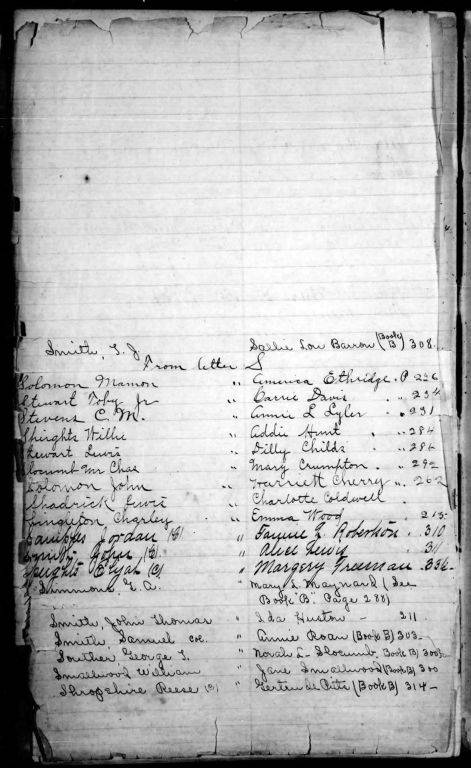 Smith, T. J. Sallie Lou Barron (Book B) 308.
From letter S
Solomon Mamon " America Ethridge. P 226
Stewart Toby Jr " Carrie Davis . " 234
Stevens C. M. " Annie L Lyler . " 231
Speights Willie " Addie Hunt . " 284
Stewart Lewis " Dilly Childs . " 286
Slocumb Mr Chas " Mary Crumpton . " 292
Solomon John " Harriett Cherry " 262
Shadrick Lewis " Charlotte Coldwell .
Singleton Charley " Emma Wood . 213-
Jordan (C) " Fannie L Roberson . 310
Smith, John (C) " Alice Lewis . 311
Speights Elijah (C) " Margery Freeman . 336-
Simmons, E. A. " Mary L Maynard (See
Book "B" Page 288)
Smith, John Thomas " Ida Huston - 211
Smith, Samuel coe. " Annie Roan (Book B) 303-
Souther George T. " Norah L. Slocumb, Book B) 300½
Smallwood William " Jane Smallwood (Book B) 300
Shropshire Reese (C) " Gertrude Pitts (Book B) 314-